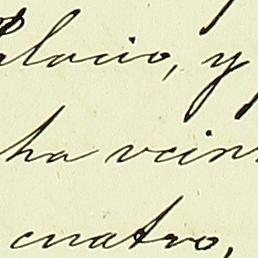 Palacio, y
ha vein
cuatro,